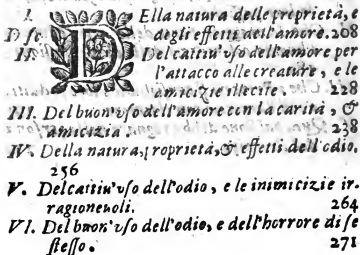 I. DElla natura delle proprietà, e
Disc. degli effetti dell'amore. 208
II. Del cattiu'vso dell'amore per
l'attacco alle creature, e le
amicizie illecite. 228
III. Del buon'vso dell'amore con la carità, &
amicizia. 238
IV. Della natura, proprietà, & effetti dell'odio.
256
V. Del cattiu'vso dell'odio, e le inimicizie ir-
ragioneuoli. 264
VI. Del buon'vso dell'odio, e dell'horrore di se
stesso. 271